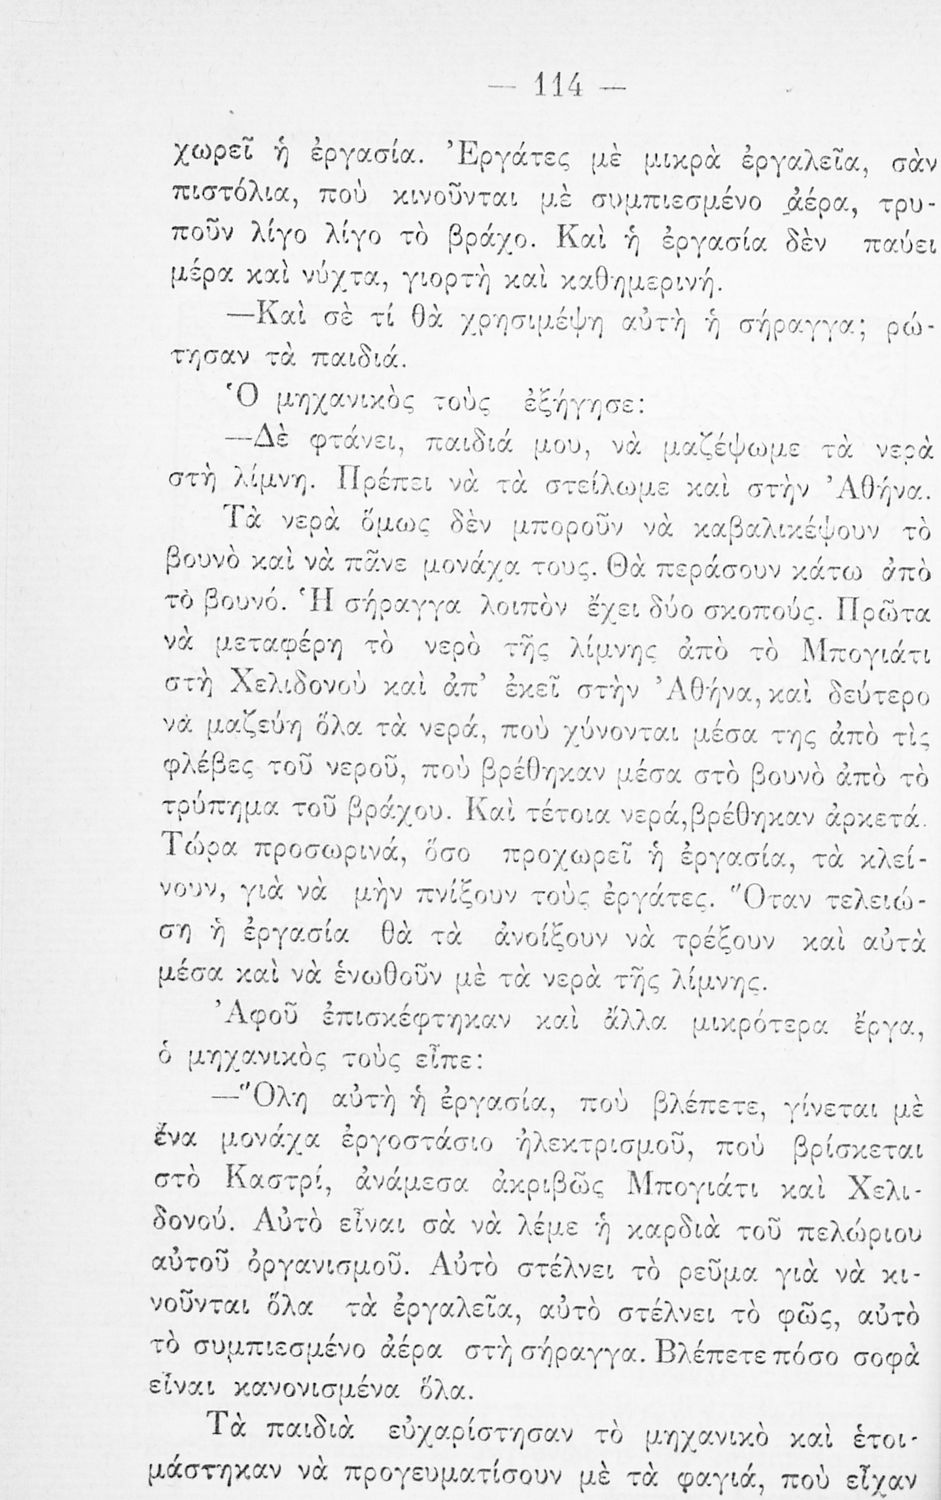 — 114 —
χωρεῖ ἡ ἐργασία. Ἐργάτες μὲ μικρὰ ἐργαλεῖα, σὰν
πιστόλια, ποὺ κινοῦνται μὲ συμπιεσμένο ἀέρα, τρυ-
ποῦν λίγο λίγο τὸ βράχο. Καὶ ἡ ἐργασία δὲν παύει
μέρα καὶ νύχτα, γιορτὴ καὶ καθημερινή.
—Καὶ σὲ τί θὰ χρησιμέψη αὐτὴ ἡ σήραγγα; ρώ-
τησαν τὰ παιδιά.
Ὁ μηχανικὸς τοὺς ἐξήγησε:
—Δὲ φτάνει, παιδιά μου, νὰ μαζέψωμε τὰ νερὰ
στὴ λίμνη. Πρέπει νὰ τὰ στείλωμε καὶ στὴν Ἀθήνα.
Τὰ νερὰ ὅμως δὲν μποροῦν νὰ καβαλικέψουν τὸ
βουνὸ καὶ νὰ πᾶνε μονάχα τους. Θὰ περάσουν κάτω ἀπὸ
τὸ βουνό. Ἡ σήραγγα λοιπὸν ἔχει δύο σκοπούς. Πρῶτα
νὰ μεταφέρη τὸ νερὸ τῆς λίμνης ἀπὸ τὸ Μπογιάτι
στὴ Χελιδονοὺ καὶ ἀπ' ἐκεῖ στὴν Ἀθήνα, καὶ δεύτερο
νὰ μαζεύη ὅλα τὰ νερά, ποὺ χύνονται μέσα της ἀπὸ τὶς
φλέβες τοῦ νεροῦ, ποὺ βρέθηκαν μέσα στὸ βουνὸ ἀπὸ τὸ
τρύπημα τοῦ βράχου. Καὶ τέτοια νερά,βρέθηκαν ἀρκετά.
Τώρα προσωρινά, ὅσο προχωρεῖ ἡ ἐργασία, τὰ κλεί-
νουν, γιὰ νὰ μὴν πνίξουν τοὺς ἐργάτες. Ὅταν τελειώ-
ση ἡ ἐργασία θὰ τὰ ἀνοίξουν νὰ τρέξουν καὶ αὐτὰ
μέσα καὶ νὰ ἑνωθοῦν μὲ τὰ νερὰ τῆς λίμνης.
Ἀφοῦ ἐπισκέφτηκαν καὶ ἄλλα μικρότερα ἔργα,
ὁ μηχανικὸς τοὺς εἶπε:
—Ὅλη αὐτὴ ἡ ἐργασία, ποὺ βλέπετε, γίνεται μὲ
ἕνα μονάχα ἐργοστάσιο ἠλεκτρισμοῦ, ποὺ βρίσκεται
στὸ Καστρί, ἀνάμεσα ἀκριβῶς Μπογιάτι καὶ Χελι-
δονού. Αὐτὸ εἶναι σὰ νὰ λέμε ἡ καρδιὰ τοῦ πελώριου
αὐτοῦ ὀργανισμοῦ. Αὐτὸ στέλνει τὸ ρεῦμα γιὰ νὰ κι-
νοῦνται ὅλα τὰ ἐργαλεῖα, αὐτὸ στέλνει τὸ φῶς, αὐτὸ
τὸ συμπιεσμένο ἀέρα στὴ σήραγγα. Βλέπετε πόσο σοφὰ
εἶναι κανονισμένα ὅλα.
Τὰ παιδιὰ εὐχαρίστησαν τὸ μηχανικὸ καὶ ἑτοι-
μάστηκαν νὰ προγευματίσουν μὲ τὰ φαγιά, ποὺ εἶχαν